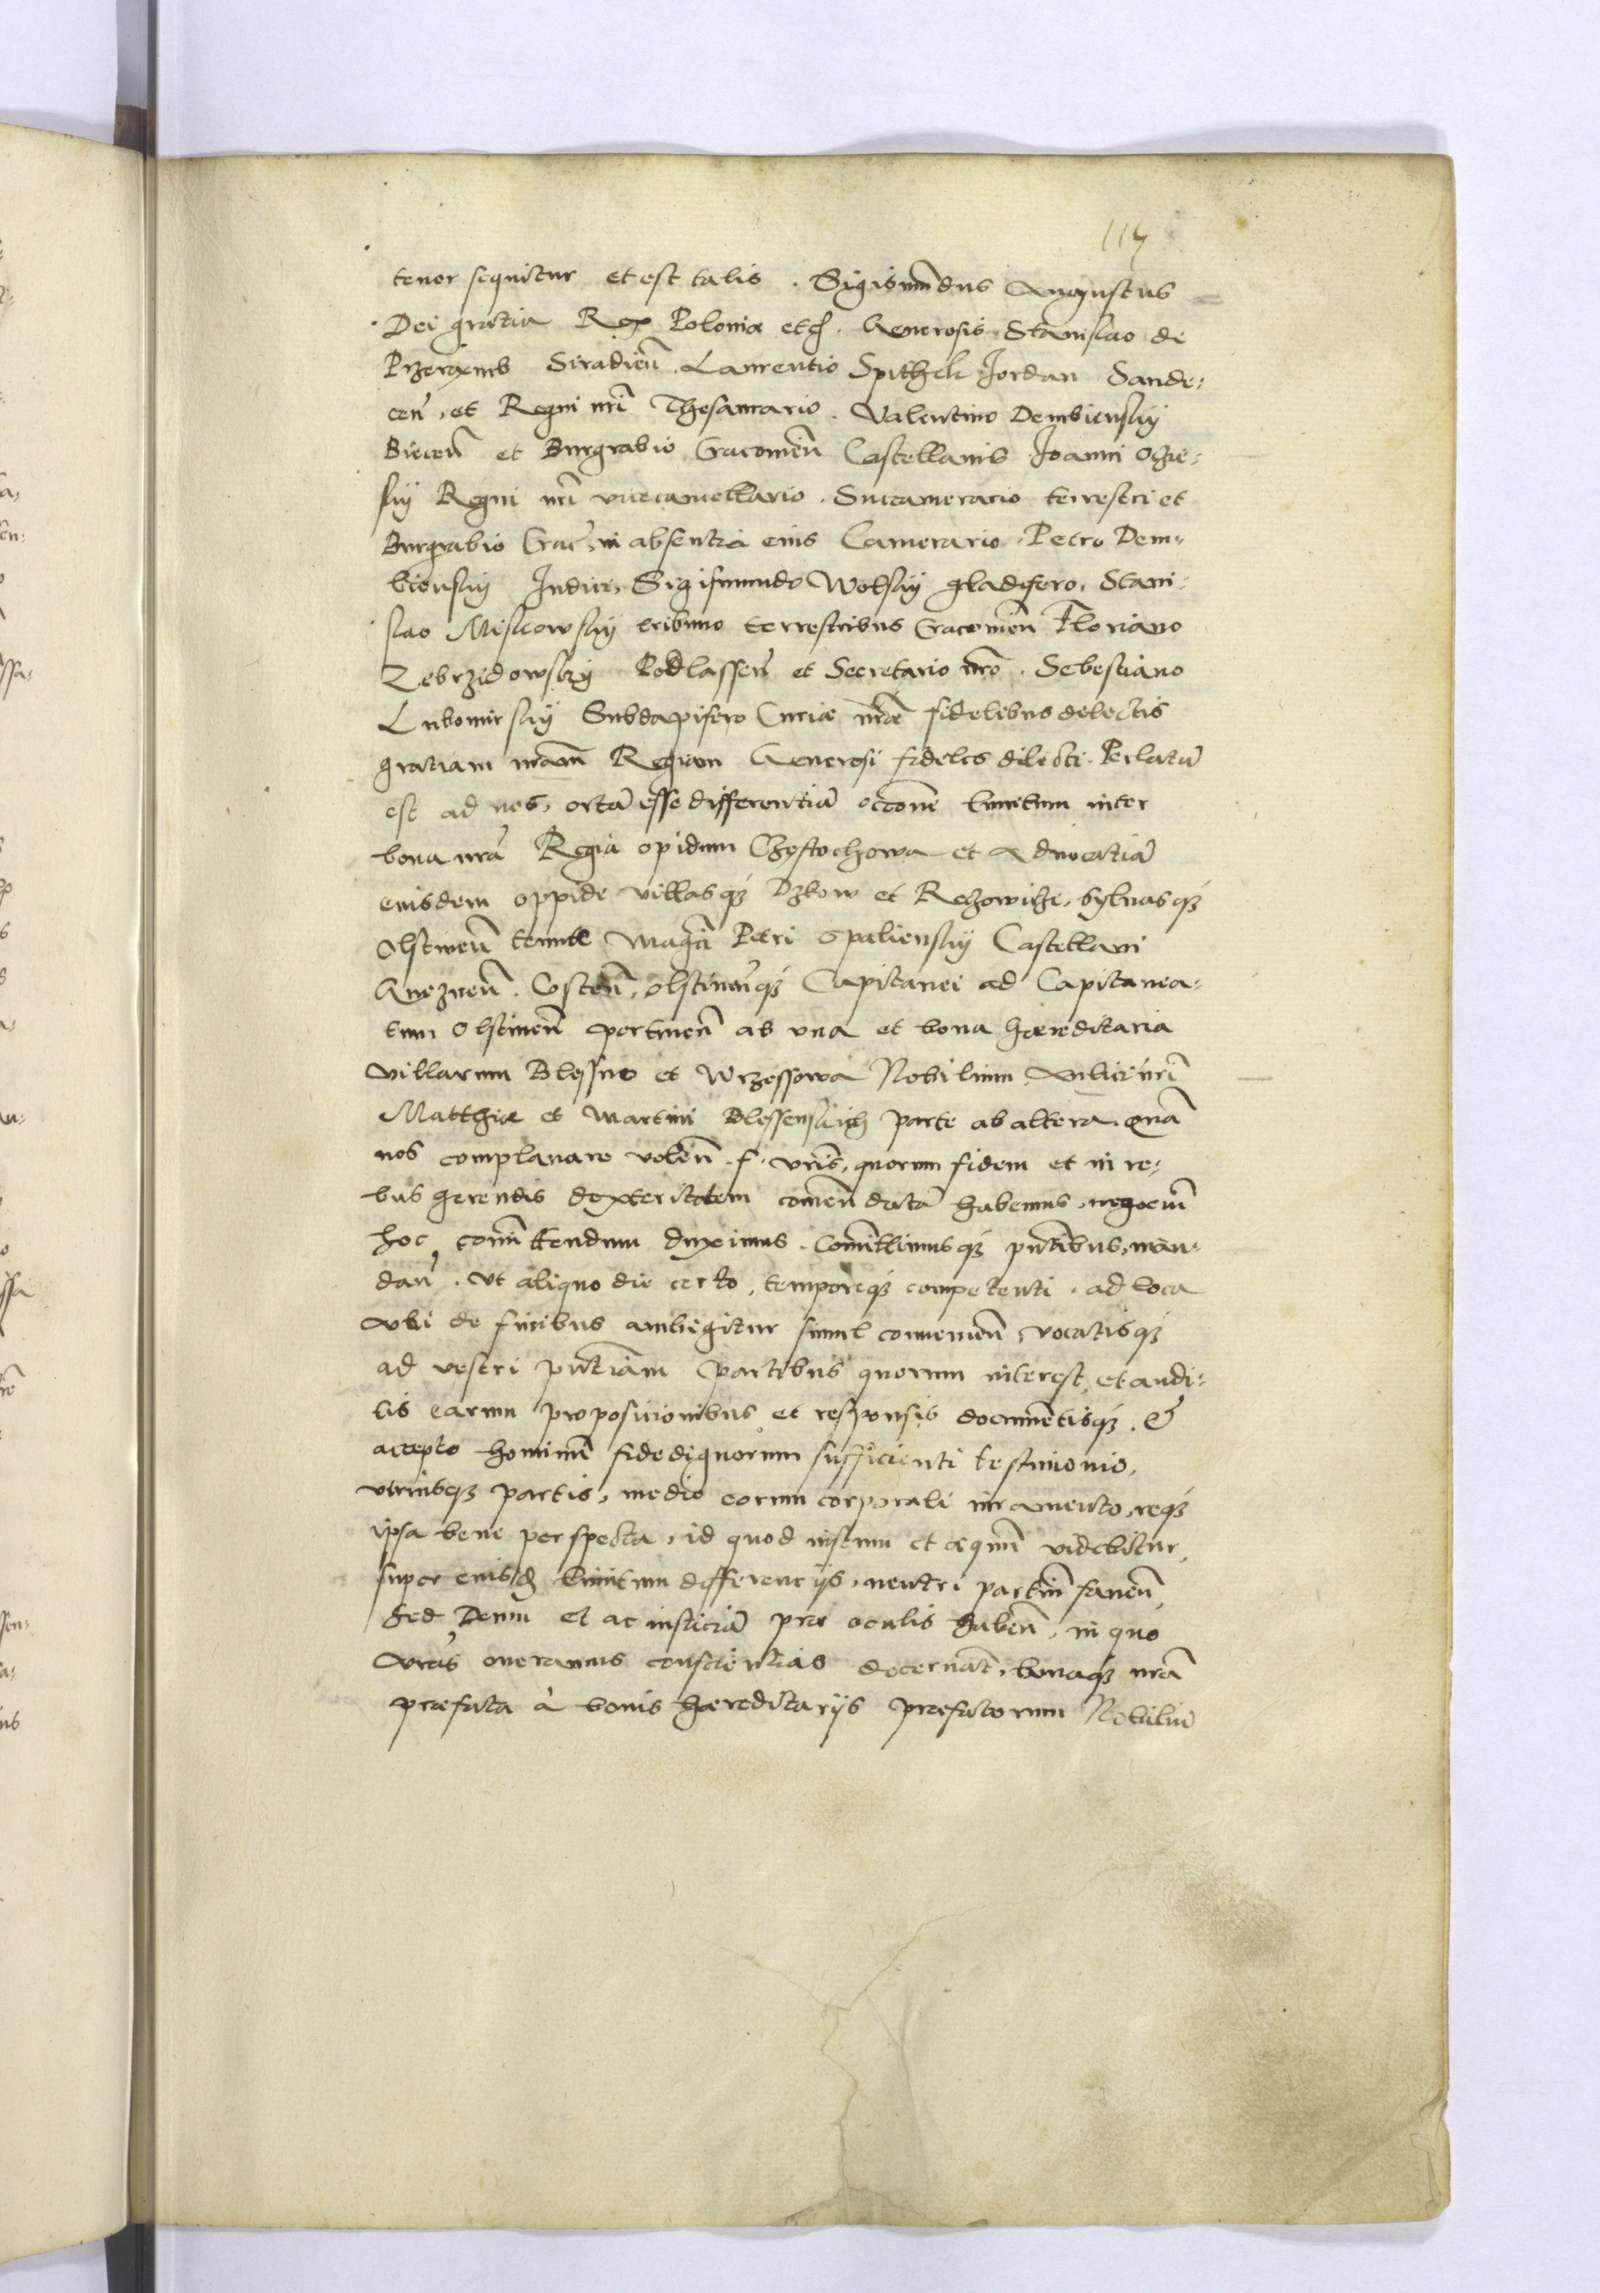 117
tenor sequitur et est talis. Sigismūdus Augustus
Dei gratia Rex Poloniæ etc. Generosis Stanislao de
Przerąmb Siradień. Laurentio Spithek Jordan Sande:
ceń, et Regni nrī Thesaurario. Valentino Dembiensky
Bieceń et Burgrabio Cracouień Castellanis Joanni Oczie:
sky Regni nrī vicecancellario. Succamerario terrestri et
Burgrabio Crac̄, in absentia eius Camerario. Petro Dem:
biensky Iudice, Sigismundo Wolsky gladifero, Stani:
slao Misscowsky tribuno terrestribus Cracouień Floriano
Zebrzidowsky Podlasseń et Secretario nrō. Sebestiano
Lubomirsky Subdapifero Curiæ nrāe fidelibus delectis
gratiam nrām Regiam Generosi fideles dilecti. Perlatū
est ad nos, ortā esse differentiā occōne limitum inter
bona nrā Regia opidum Czestochowa et Aduocatiā
eiusdem oppidi villasq̧ Dzbow et Rexowicze, syluasq̧
Olstineń tenute Magcī Petri Opaliensky Castellani
Gnezneń. Costeń, Olstineńq̧ Capitanei ad Capitanea:
tum Olstineń pertineń ab vna et bona hæreditaria
villarum Blessno et Wrzessowa Nobilium Aulicor̄ nrī
Matthiæ et Martini Blessenskich parte ab altera. Quā
nos complanare voleń. f. vrīs, quorum fidem et in re:
bus gerendis dexteritatem comēndatā habemus, negociū
hoc comīttendum duximus. Comīttimusq̧ pntībus, man:
dań. Vt aliquo die certo, temporeq̧ competenti. ad loca
vbi de finibus ambigitur simul conuenień, vocatisq̧
ad vestri pntīam partibus quorum interest, et audi:
tis earum propositionibus et responsis documētisq̧. &
accepto hominū fidedignorum sufficienti testimonio,
vtriusq̧ partis, medio eorum corporali iuramento, req̧
ipsa bene perspecta, id quod iustum et æquū videbitur,
super eiusd̄ limitum differencijs, neutri partiū faueń,
sed Deum et ac iusticiā præ oculis habeń, in quo
vrās oneramus conscientias decernāt, bonaq̧ nrā
præfata à bonis hæreditarijs præfatorum Nobiliū